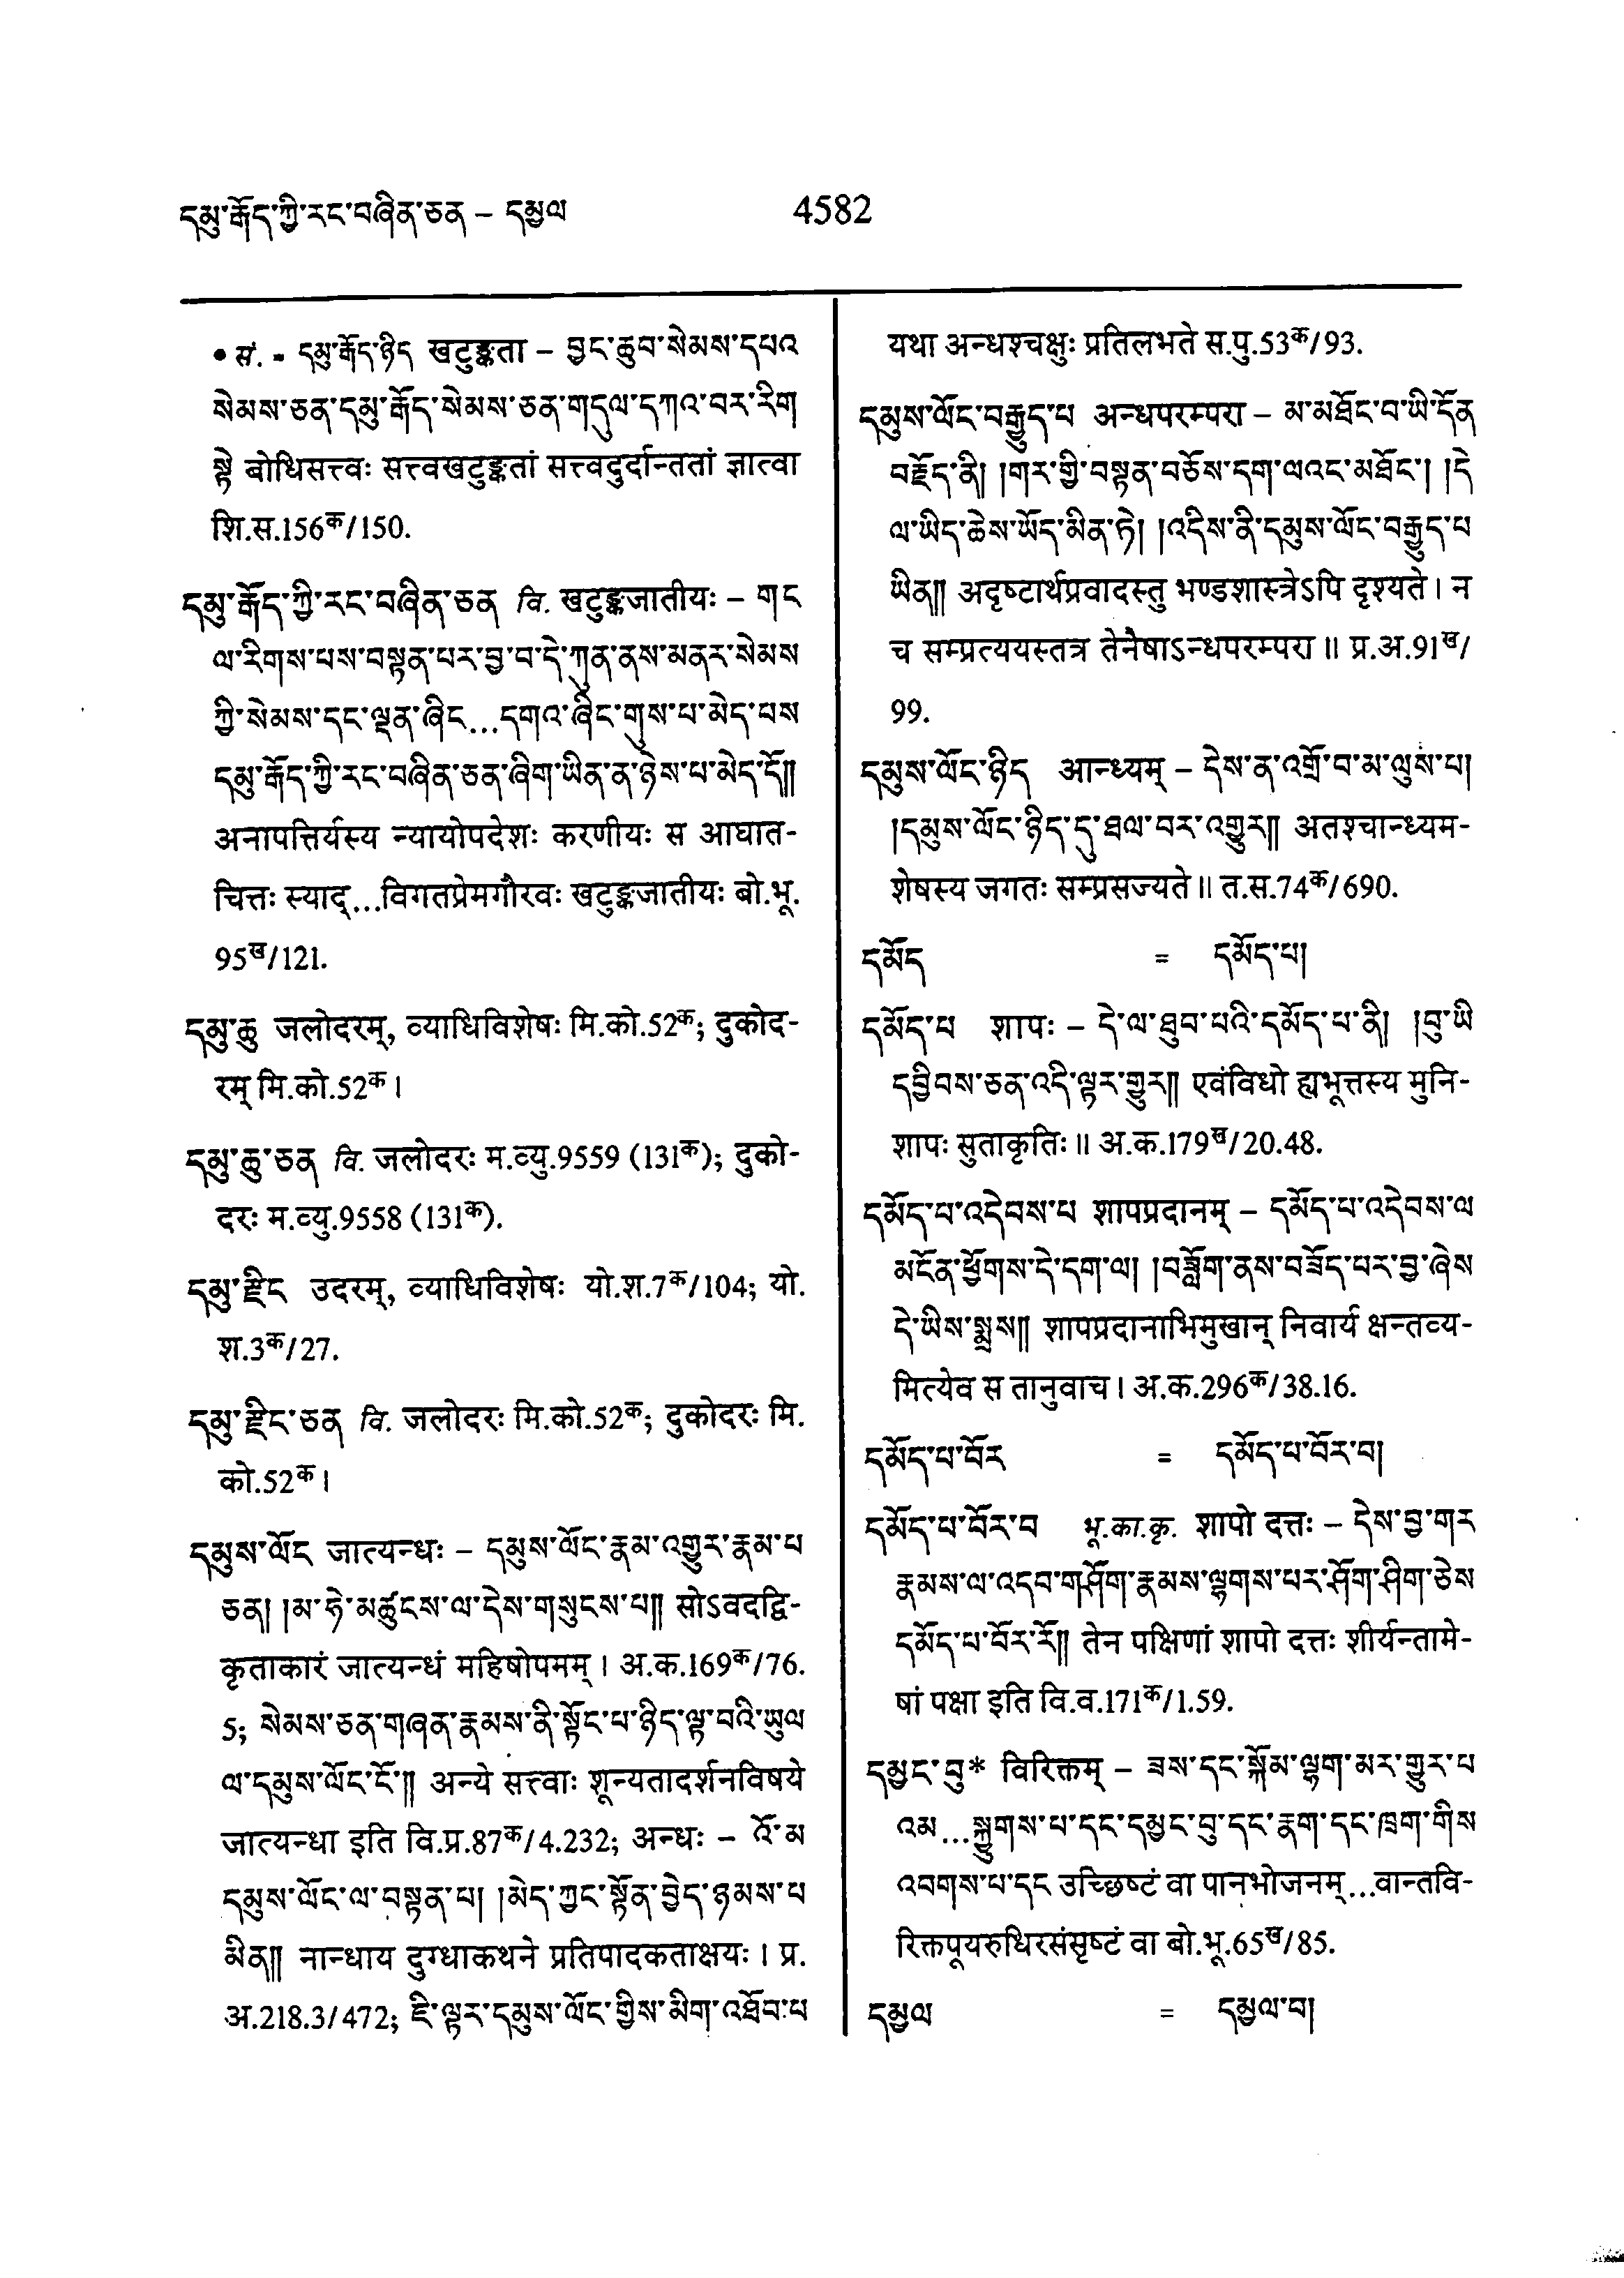 དམུ་རྒོད་ཀྱི་རང་བཞིན་ཅན – དམྱལ
4582
• सं. - དམུ་རྒོད་ཉིད खटुङ्कता – བྱང་ཆུབ་སེམས་དཔའ
སེམས་ཅན་དམུ་རྒོད་སེམས་ཅན་གདུལ་དཀའ་བར་རིག
སྟེ बोधिसत्त्वः सत्त्वखटुङ्कतां सत्त्वदुर्दान्ततां ज्ञात्वा
शि.स.156क/150.
དམུ་རྒོད་ཀྱི་རང་བཞིན་ཅན वि. खटुङ्कजातीयः – གང
ལ་རིགས་པས་བསྟན་པར་བྱ་བ་དེ་ཀུན་ནས་མནར་སེམས
ཀྱི་སེམས་དང་ལྡན་ཞིང...དགའ་ཞིང་གུས་པ་མེད་པས
དམུ་རྒོད་ཀྱི་རང་བཞིན་ཅན་ཞིག་ཡིན་ན་ཉེས་པ་མེད་དོ༎
अनापत्तिर्यस्य न्यायोपदेशः करणीयः स आघात-
चित्तः स्याद्...विगतप्रेमगौरवः खटुङ्कजातीयः बो.भू.
95ख/121.
དམུ་ཆུ जलोदरम्, व्याधिविशेषः मि.को.52क; दुकोद-
रम् मि.को.52क।
དམུ་ཆུ་ཅན वि. जलोदरः म.व्यु.9559 (131क); दुको-
दरः म.व्यु.9558 (131क).
དམུ་རྫིང उदरम्, व्याधिविशेषः यो.श.7क/104; यो.
श.3क/27.
དམུ་རྫིང་ཅན वि. जलोदरः मि.को.52क; दुकोदरः मि.
को.52क।
དམུས་ལོང जात्यन्धः – དམུས་ལོང་རྣམ་འགྱུར་རྣམ་པ
ཅན། །མ་ཧེ་མཚུངས་ལ་དེས་གསུངས་པ༎ सोऽवदद्वि-
कृताकारं जात्यन्धं महिषोपमम्। अ.क.169क/76.
5; སེམས་ཅན་གཞན་རྣམས་ནི་སྟོང་པ་ཉིད་ལྟ་བའི་ཡུལ
ལ་དམུས་ལོང་ངོ་༎ अन्ये सत्त्वाः शून्यतादर्शनविषये
जात्यन्धा इति वि.प्र.87क/4.232; अन्धः – འོ་མ
དམུས་ལོང་ལ་བསྟན་པ། །མེད་ཀྱང་སྟོན་བྱེད་ཉམས་པ
མིན༎ नान्धाय दुग्धाकथने प्रतिपादकताक्षयः। प्र.
अ.218.3/472; ཇི་ལྟར་དམུས་ལོང་གྱིས་མིག་འཐོབ་པ
यथा अन्धश्चक्षुः प्रतिलभते स.पु.53क/93.
དམུས་ལོང་བརྒྱུད་པ अन्धपरम्परा – མ་མཐོང་བ་ཡི་དོན
བརྗོད་ནི། །གར་གྱི་བསྟན་བཅོས་དག་ལའང་མཐོང་། །དེ
ལ་ཡིད་ཆེས་ཡོད་མིན་ཏེ། །འདིས་ནི་དམུས་ལོང་བརྒྱུད་པ
ཡིན༎ अदृष्टार्थप्रवादस्तु भण्डशास्त्रेऽपि दृश्यते। न
च सम्प्रत्ययस्तत्र तेनैषाऽन्धपरम्परा॥ प्र.अ.91ख/
99.
དམུས་ལོང་ཉིད आन्ध्यम् – དེས་ན་འགྲོ་བ་མ་ལུས་པ།
།དམུས་ལོང་ཉིད་དུ་ཐལ་བར་འགྱུར༎ अतश्चान्ध्यम-
शेषस्य जगतः सम्प्रसज्यते॥ त.स.74क/690.
དམོད = དམོད་པ།
དམོད་པ शापः – དེ་ལ་ཐུབ་པའི་དམོད་པ་ནི། །བུ་ཡི
དབྱིབས་ཅན་འདི་ལྟར་གྱུར༎ एवंविधो ह्यभूत्तस्य मुनि-
शापः सुताकृतिः॥ अ.क.179ख/20.48.
དམོད་པ་འདེབས་པ शापप्रदानम् – དམོད་པ་འདེབས་ལ
མངོན་ཕྱོགས་དེ་དག་ལ། །བཟློག་ནས་བཟོད་པར་བྱ་ཞེས
དེ་ཡིས་སྨྲས༎ शापप्रदानाभिमुखान् निवार्य क्षन्तव्य-
मित्येव स तानुवाच। अ.क.296क/38.16.
དམོད་པ་བོར = དམོད་པ་བོར་བ།
དམོད་པ་བོར་བ भू.का.कृ. शापो दत्तः – དེས་བྱ་གར
རྣམས་ལ་འདབ་གཤོག་རྣམས་ལྷགས་པར་ཤོག་ཤིག་ཅེས
དམོད་པ་བོར་རོ༎ तेन पक्षिणां शापो दत्तः शीर्यन्तामे-
षां पक्षा इति वि.व.171क/1.59.
དམྱང་བུ* विरिक्तम् – ཟས་དང་སྐོམ་ལྷག་མར་གྱུར་པ
འམ...སྐྱུགས་པ་དང་དམྱང་བུ་དང་རྣག་དང་ཁྲག་གིས
འབགས་པ་དང उच्छिष्टं वा पानभोजनम्...वान्तवि-
रिक्तपूयरुधिरसंसृष्टं वा बो.भू.65ख/85.
དམྱལ = དམྱལ་བ།